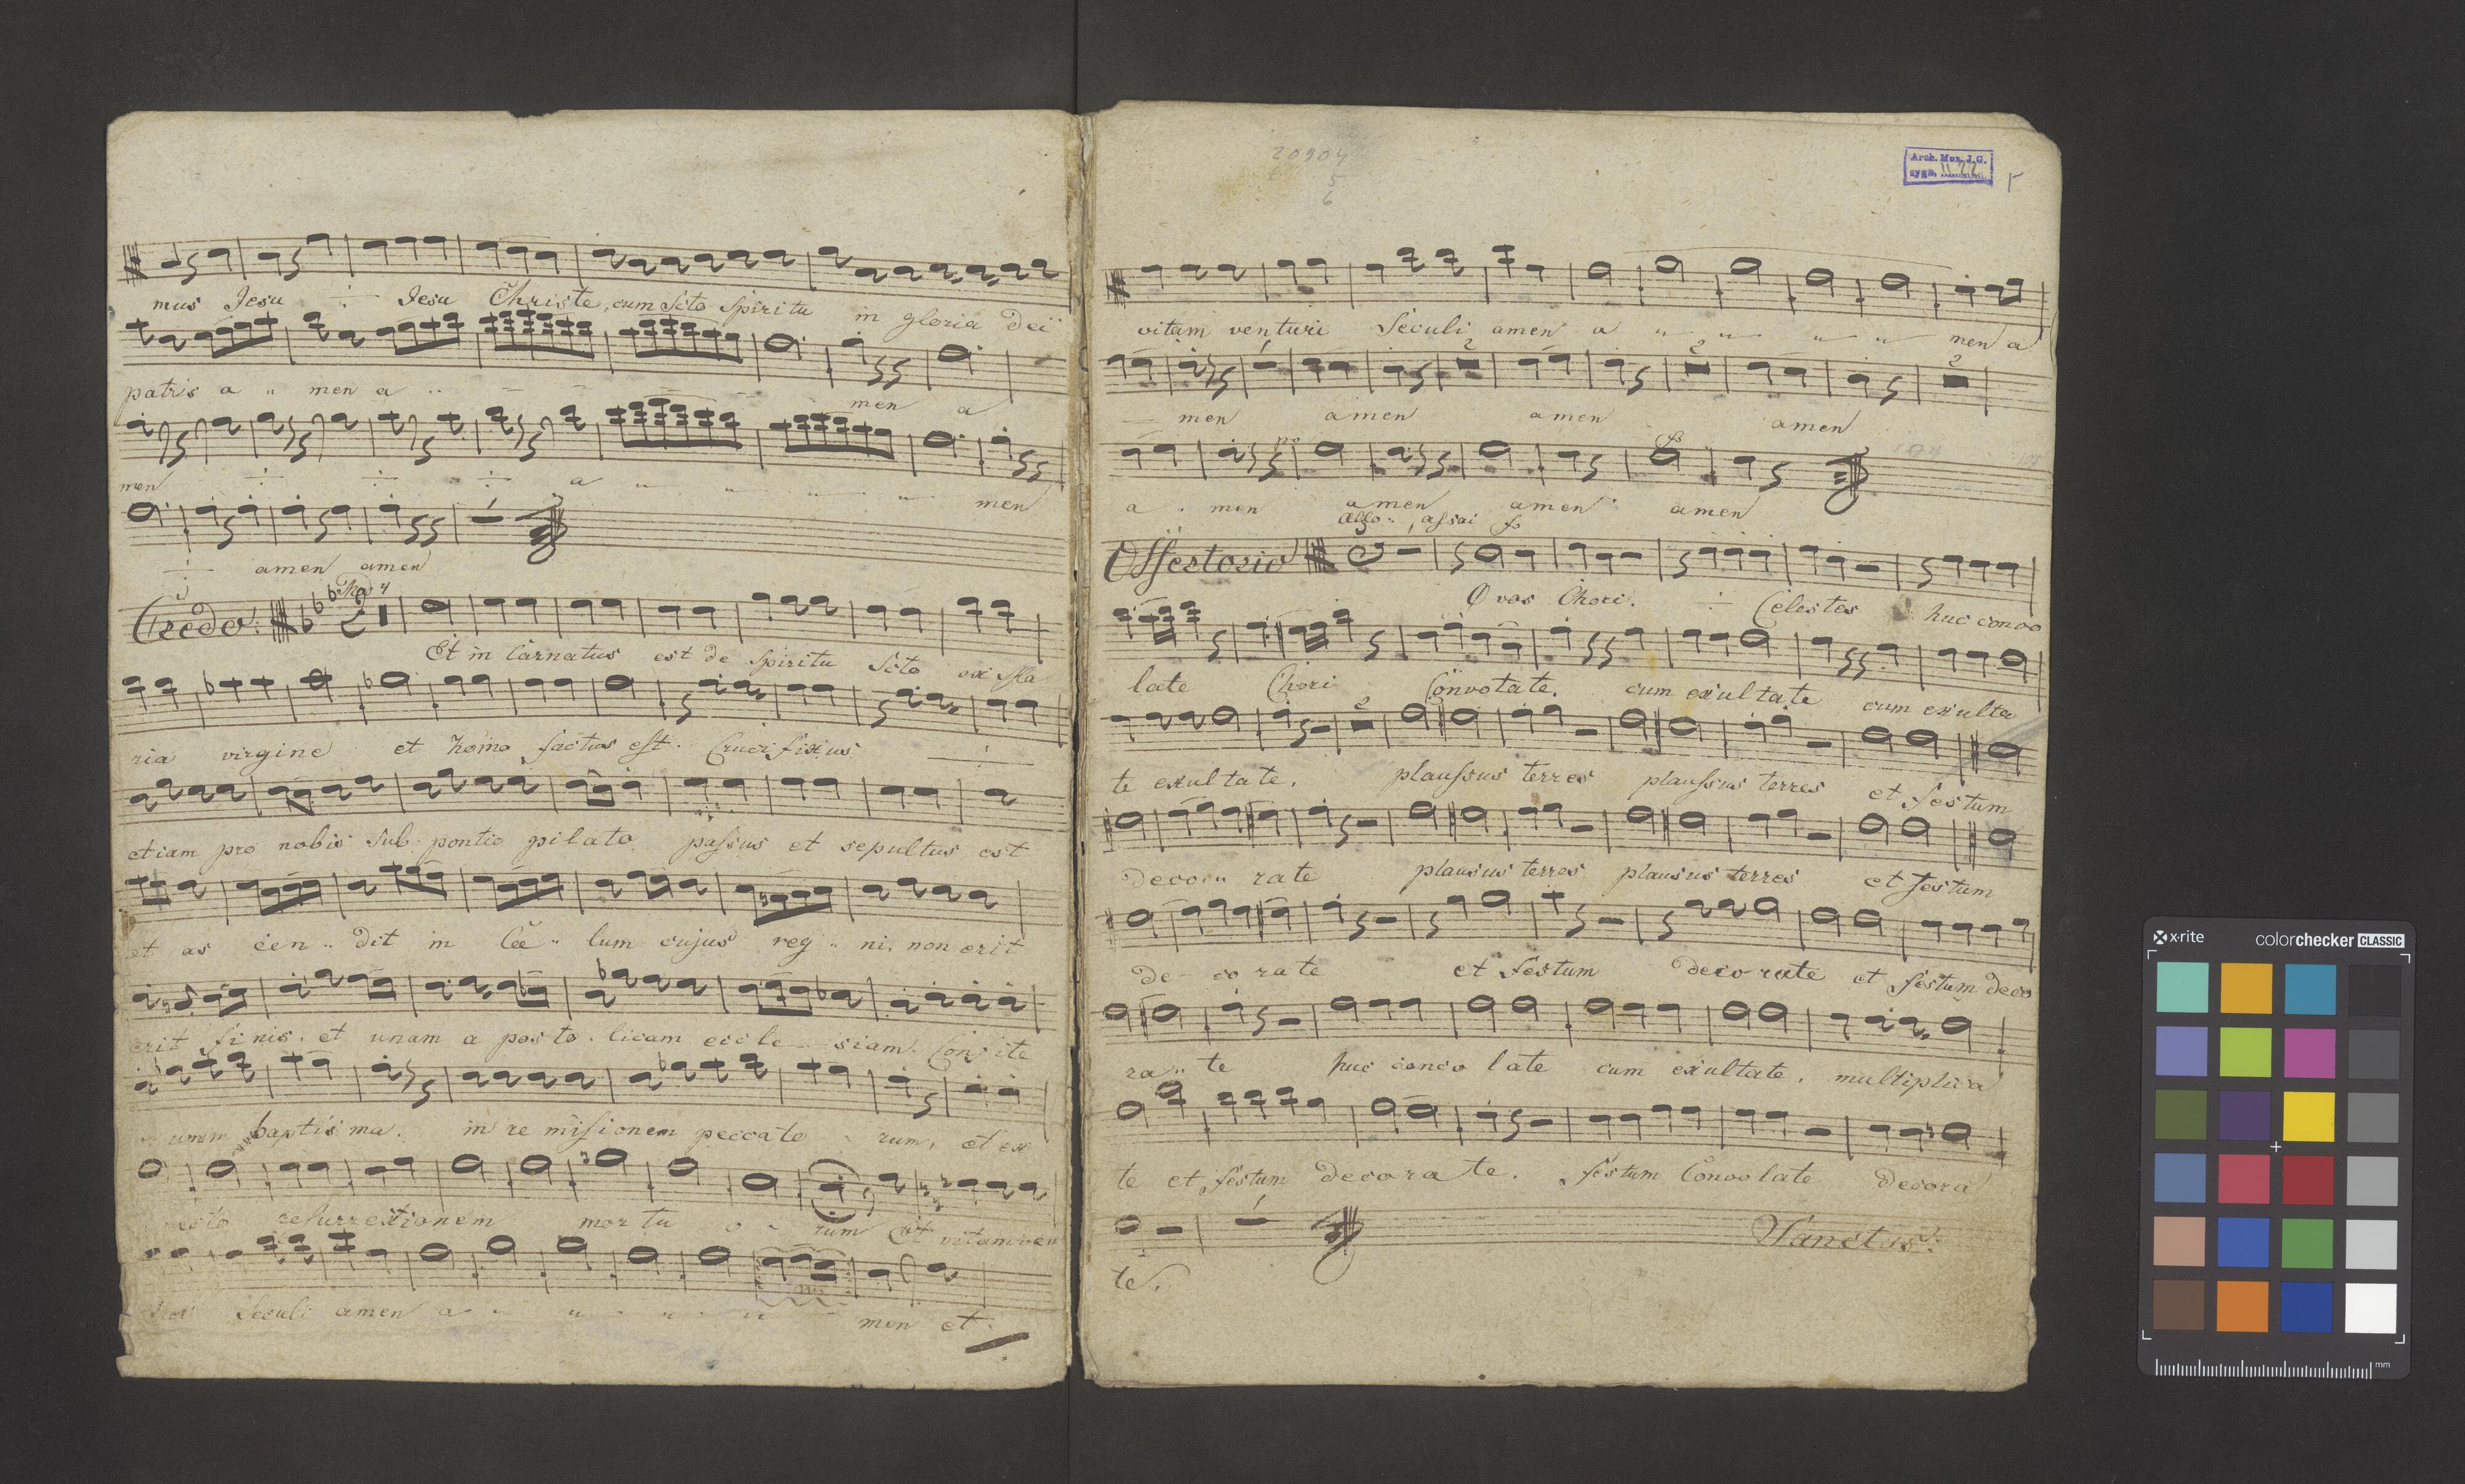 mus Jesu Jesu Christe, cum Scto Spiritu in gloria dei
patris a men a men a
men a men
amen amen
Credo. 4
Et in Carnatus est de Spiritu Scto ex Ma
ria virgine et homo factus est. Crucifixus
etiam pro nobis sub pontio pilato passus et sepultus est
et as cen dit in Cœ lum cujus reg ni, non erit
erit finis. et unam a posto licam eccle siam. Confite
unum baptisma. in re misionem peccato rum, et ex
resurrextionem mor tu o rum et vitam ven
Seculi amen a men et
20904
5
6
Arch. Mus. J. G.
sygn.
vitam venturi Seculi amen a men a
men amen amen amen
a men amen amen amen
Offertorio Allo assai
O vos Chori. Celestes huc convo
late Chori Convolate. cum exultate cum exulta
te exultate. plaussus terres plaussus terres et festum
deco rate plausus terres plausus terres et festum
de co rate et festum decorate et festum deco
ra te huc convo late cum exultate. multiplica
te et festum decorate. festum Convolate decora
te. Sanctus.
x·rite colorchecker CLASSIC
mm